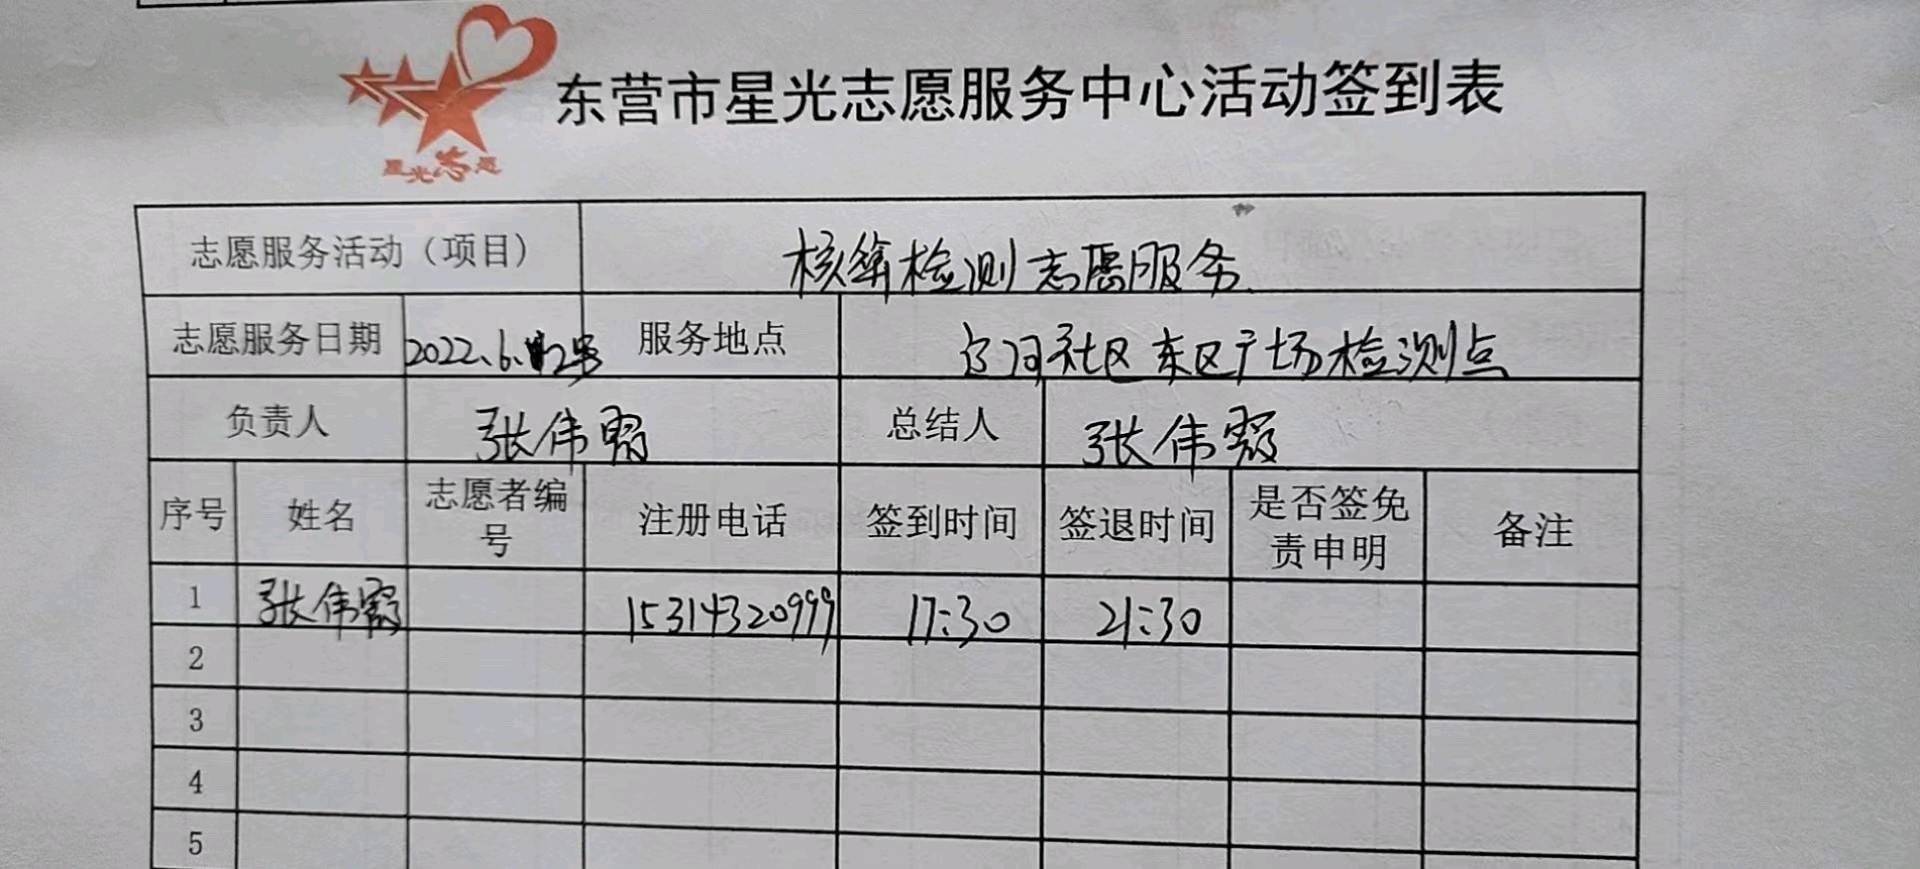 星光志愿
东营市星光志愿服务中心活动签到表
志愿服务活动（项目） 核酸检测志愿服务
志愿服务日期 2022.6.12号 服务地点 辽河社区东区广场检测点
负责人 张伟霞 总结人 张伟霞
序号 姓名 志愿者编号 注册电话 签到时间 签退时间 是否签免责申明 备注
1 张伟霞 15314320999 17:30 21:30
2
3
4
5